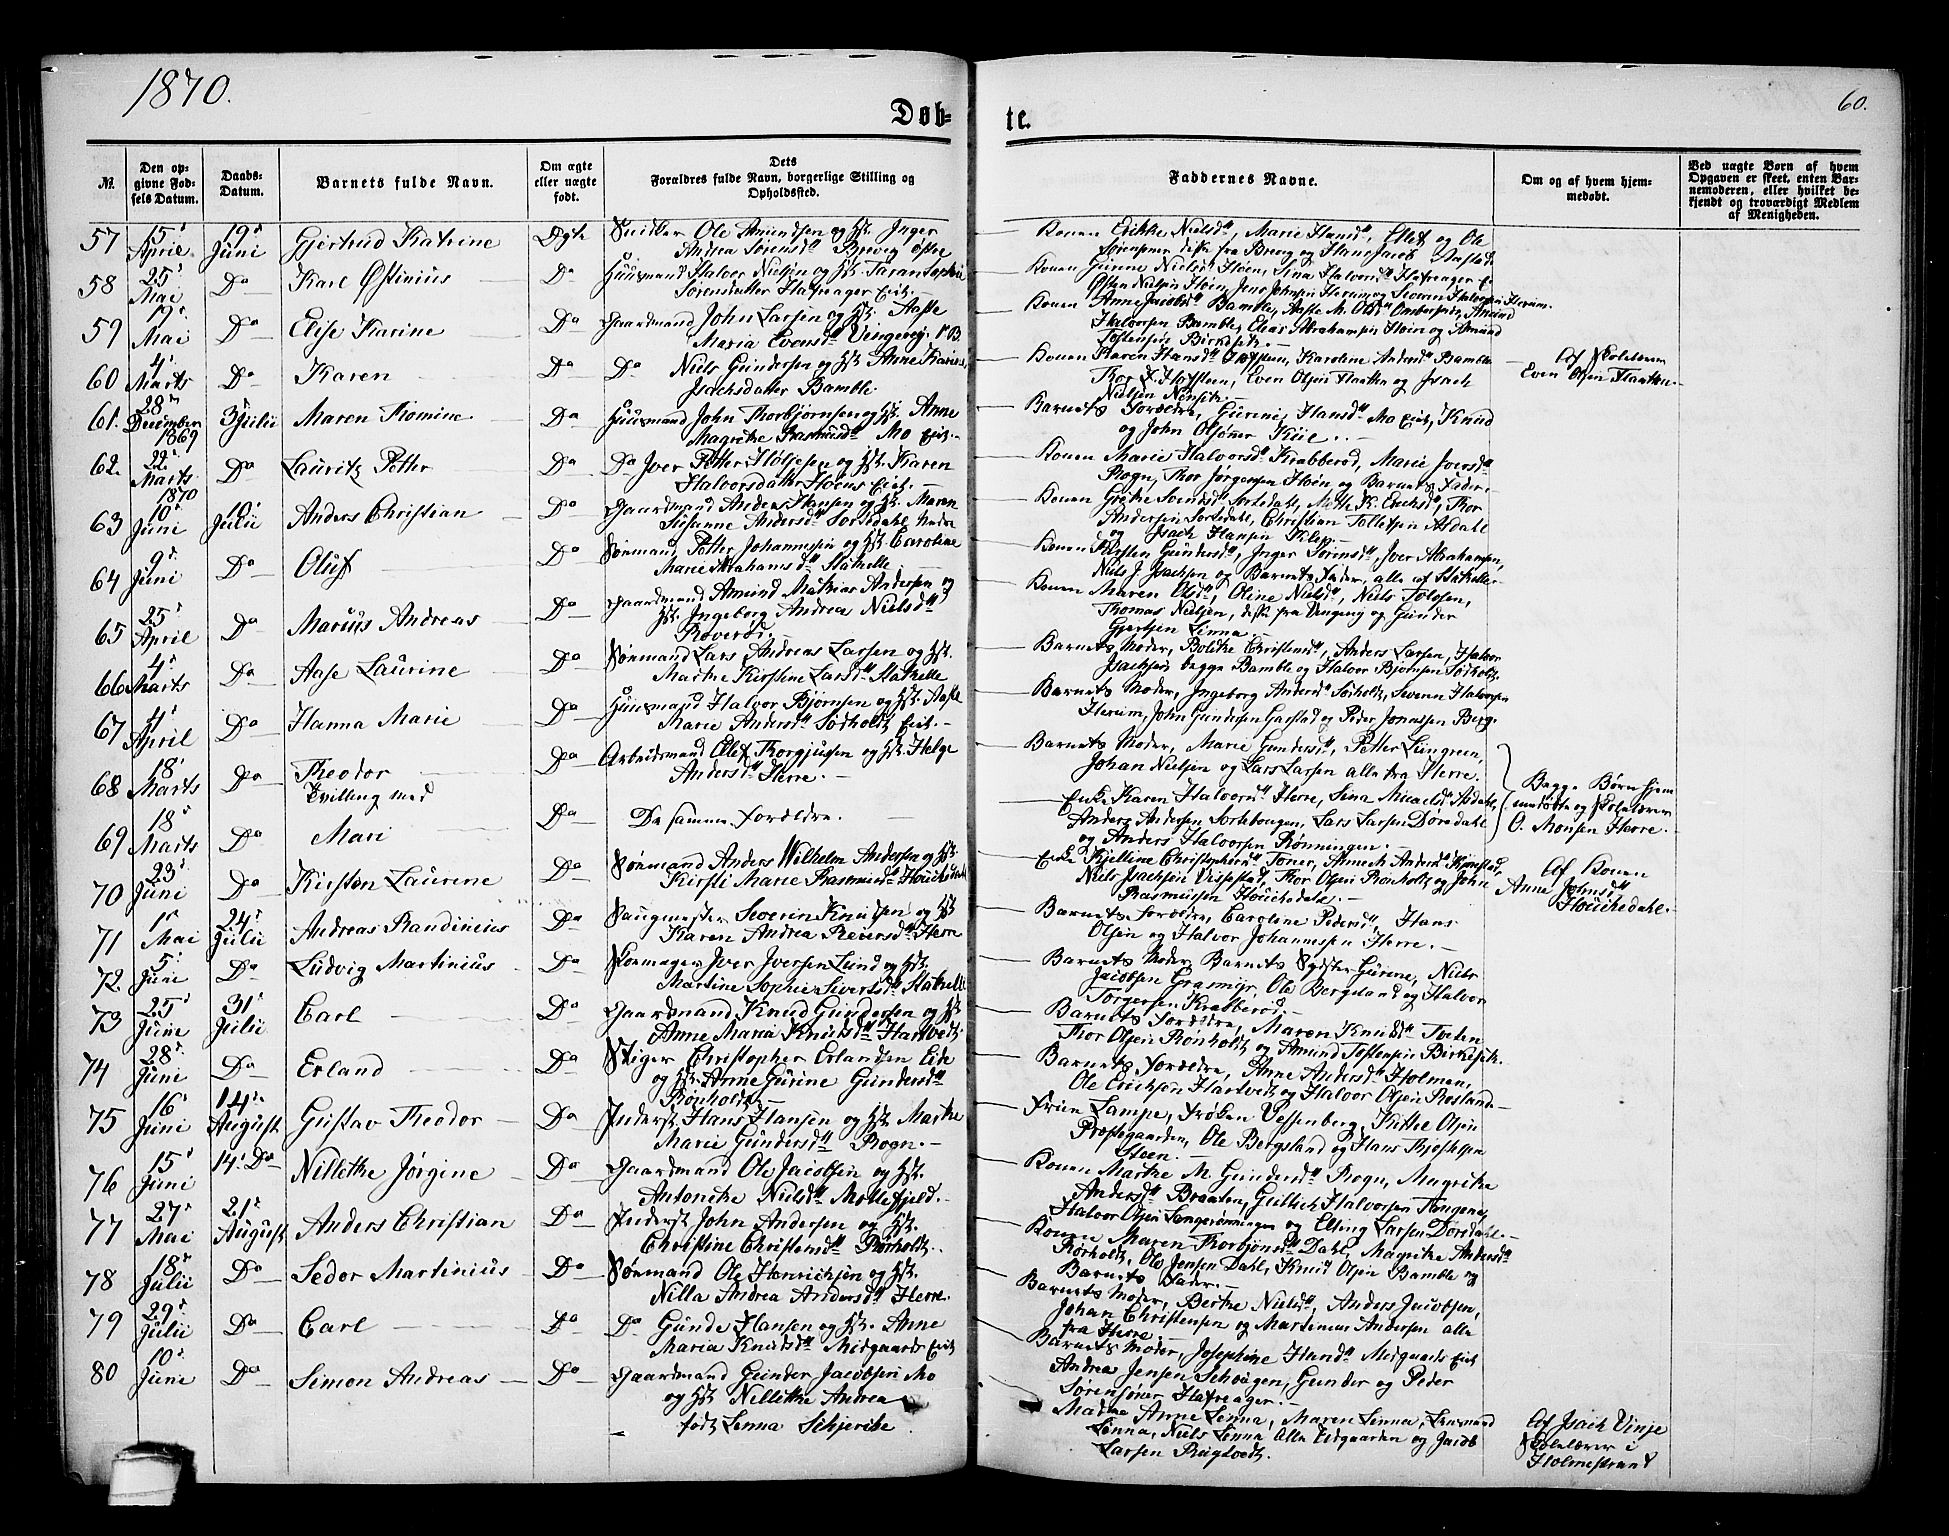 1870.
60.
Døb-
te.
№.
Den op-
givne Fød-
sels Datum.
Daabs-
Datum.
Barnets fulde Navn.
Om ægte
eller uægte
født.
Dets
Forældres fulde Navn, borgerlige Stilling og
Opholdssted.
Faddernes Navne.
Om og af hvem hjem-
medøbt.
Ved uægte Børn af hvem
Opgaven er skeet, enten Bar-
nemoderen, eller hvilket be-
kjendt og troværdigt Medlem
af Menigheden.
57 15 April 19 Juni Gjertrud Katrine Ægte Snidker Ole Amundsen og Hst. Inger
Andrea Sørensd. Brevig østre
Konen Erikke Nielsd., Marie Hansd., Ellef og Ole
Sørensøner, diste fra Brevig og Hans Jacob
58 25 Mai Do Karl Østinius Do Huusmand Halvor Nielsen og Hst. Taran Sophie
Sørensdatter Hafreager Eid.
Konen Gurine Nielsd. Høen, Lina Halvorsd. Hafreager
Østen Nielsen Høen, Jens Johnsen Herum og Severin Halvorsen Herum.
59 19 Mai Do Elise Karine Do Gaardmand John Larsen og Hst. Aaste
Maria Evensd. Vingereig. P.B.
Konen Anne Jacobsd. Bamble, Aaste M. Olsd. Ombordsnes, Amund
Halvorsen Bamble, Elias Abrahamsen Høen og Amund
Tostensen Birkesek.
60 4 Marts Do Karen Do Do Niels Gundersen og Hst. Anne Karine
Isachsdatter Bamble.
Konen Karen Hansd. Hofsteen, Karoline Andersd. Bamble
Thor Hofsteen, Even Olsen Flaatten og Isach
Nielsen Nensek.
Af Skolelærer
Even Olsen Flaatten.
61. 28 December 1869 3 Julii Maren Tomine Do Huusmand John Thorbjørnsen og Hst. Anne
Magrethe Rasmusd. Mo Eid.
Barnets Forældre, Gurine Hansd. Mo Eid, Knud
og John Olsøner Kiil.
62. 22 Marts 1870 Do Lauritz Petter Do Do Iver Petter Holjesen og Hst. Karen
Halvorsdatter Høens Eid.
Konen Marie Halvorsd. Krabberød, Marie Iversd.
Rogn, Thor Jørgensen Høen og Barnets Fader.
63 10 Juni 10 Julii Anders Christian Do Gaardmand Anders Hansen og Hst. Maren
Susanne Andersd. Sortedahl Nedre
Konen Grethe Svendsd. Sortedahl, Mette K. Ericksd., Thor
Andersen Sortedahl, Christian Tollefsen Asdahl
og Isach Hansen Klep.
64 9 Juni Do Oluf Do Sømand Petter Johannesen og Hst. Caroline
Marie Abrahamsd. Stathelle
Konen Kirsten Gundersd., Inger Sørensd., Iver Abrahamsen,
Niels J. Isachsen og Barnets Fader, alle af Stathelle.
65 25 April Do Marius Andreas Do Gaardmand Amund Mathias Andersen og
Hst. Ingeborg Andrea Nielsd.
Røverø.
Konen Maren Olsd., Oline Nielsd., Niels Tolosen,
Thomas Nielsen, diste fra Vingereig og Gunder
Gjertsen Linna
66 4 Marts Do Aase Laurine Do Sømand Lars Andreas Larsen og Hst.
Marthe Kirstine Larsd. Stathelle
Barnets Moder, Bolette Christensd., Anders Larsen, Halvor
Isachsen begge Bamble og Halvor Bjørnsen Sørholt.
67 4 April Do Hanna Marie Do Huusmand Halvor Bjørnsen og Hst. Aaste
Marie Andersd. Sørholt Eid.
Barnets Moder, Ingeborg Andersd. Sørholt, Severin Halvorsen
Herum, John Gundersen Garstad og Peder Jonassen Berg.
68 18 Marts Do Theodor
Tvilling med
Do Arbeidsmand Olef Thorgjusen og Hst. Helge
Andersd. Herre.
Barnets Moder, Marie Gundersd., Petter Lungreen,
Johan Nielsen og Lars Larsen alle fra Herre.
Begge Børn hjem
medøbte og Skolelærer
O. Monsen Herre.
69 18 Marts Do Mari Do De samme Forældre.
Enke Karen Halvorsd. Herre, Lina Micaelsd. Asdahl,
Anders Andersen Sortebougen, Lars Larsen Dørdahl
og Anders Halvorsen Rønningen.
70 23 Juni Do Kirsten Laurine Do Sømand Anders Wilhelm Andersen og Hst.
Kirsti Marie Rasmusd. Houchedahl
Enke Kjelline Christophersd. Toner, Anne Andersd. Kjønstad,
Niels Isachsen Vissestad, Thor Olsen Rønholt og John
Rasmusen Houchedahl.
Af Konen
Anne Johnsd.
Houchedahl.
71 1 Mai 24 Julii Andreas Randinius Do Saugmester Severin Knudsen og Hst
Karen Andrea Reiersd. Herre
Barnets Forældre, Caroline Pedersd., Hans
Olsen og Halvor Johannesen Herre.
72 5 Juni Do Ludvig Martinius Do Skomager Iver Iversen Lund og Hst.
Martine Sophie Sivertsd. Stathelle
Barnets Moder, Barnets Syster Gurine, Niels
Jacobsen Gramyr, Ole Bergsland og Halvor
Torgersen Krabberød.
73 25 Juni 31 Julii Carl Do Gaardmand Knud Gundersen og Hst
Anne Maria Knudsd. Hartvedt.
Barnets Forældre, Maren Knudsd. Tveten
Thor Olsen Rønholt og Amund Tostensen Birkesek.
74 28 Juni Do Erland Do Stiger Christopher Erlandsen Eide
og Hst. Anne Gurine Gundersd.
Rønholt
Barnets Forældre, Anne Andersd. Holmen,
Ole Ericksen Hartvedt og Halvor Olsen Rosland
75 16 Juni 14 August Gustav Theodor Do Inderst Hans Hansen og Hst. Marthe
Marie Gundersd. Rogn.
Fruen Lampe, Frøken Vessenberg, Kitthe Olsen
Præstegaarden, Ole Bergsland og Hans Kjostelsen
Steen.
76 15 Juni 14. Do Nillethe Jørgine Do Gaardmand Ole Jacobsen og Hst.
Antonette Nielsd. Mollefjeld.
Konen Marthe M. Gundersd. Rogn, Magrethe
Andersd. Braaten, Gullich Halvorsen Tangene,
Halvor Olsen Langrønningen og Elling Larsen Dørdahl.
77 27 Mai 21 August Anders Christian Do Inderst John Andersen og Hst.
Christine Christensd. Rørholt.
Konen Maren Thorbjønsd. Dahl, Magrethe Andersd.
Rørholt, Ole Jensen Dahl, Knud Olsen Bamble og
Barnets Fader.
78 18 Julii Do Sedor Martinius Do Sømand Ole Henricksen og Hst.
Nilla Andrea Andersd. Herre.
Barnets Moder, Berthe Nielsd., Anders Jacobsen,
Johan Christensen og Martinius Andersen alle
fra Herre.
79 29 Julii Do Carl Do Do Gunde Hansen og Hst. Anne
Maria Knudsd. Midgaards Eid
Barnets Moder, Josephine Hansd. Midgaards Eid
Andrea Jensen Schougen, Gunder og Peder
Sørensøner Hafreager.
80 10 Juni Do Simon Andreas Do Gaardmand Gunder Jacobsen Mo
og Hst Nillethe Andrea
født Linna Schjerike
Madme Anne Linna, Maren Linna, Lensmand
Linna, Niels Linna alle Eidgaarden og Jacob
Larsen Rugtvedt.
Af Isach Vinje
Skolelærer i
Holmestrand